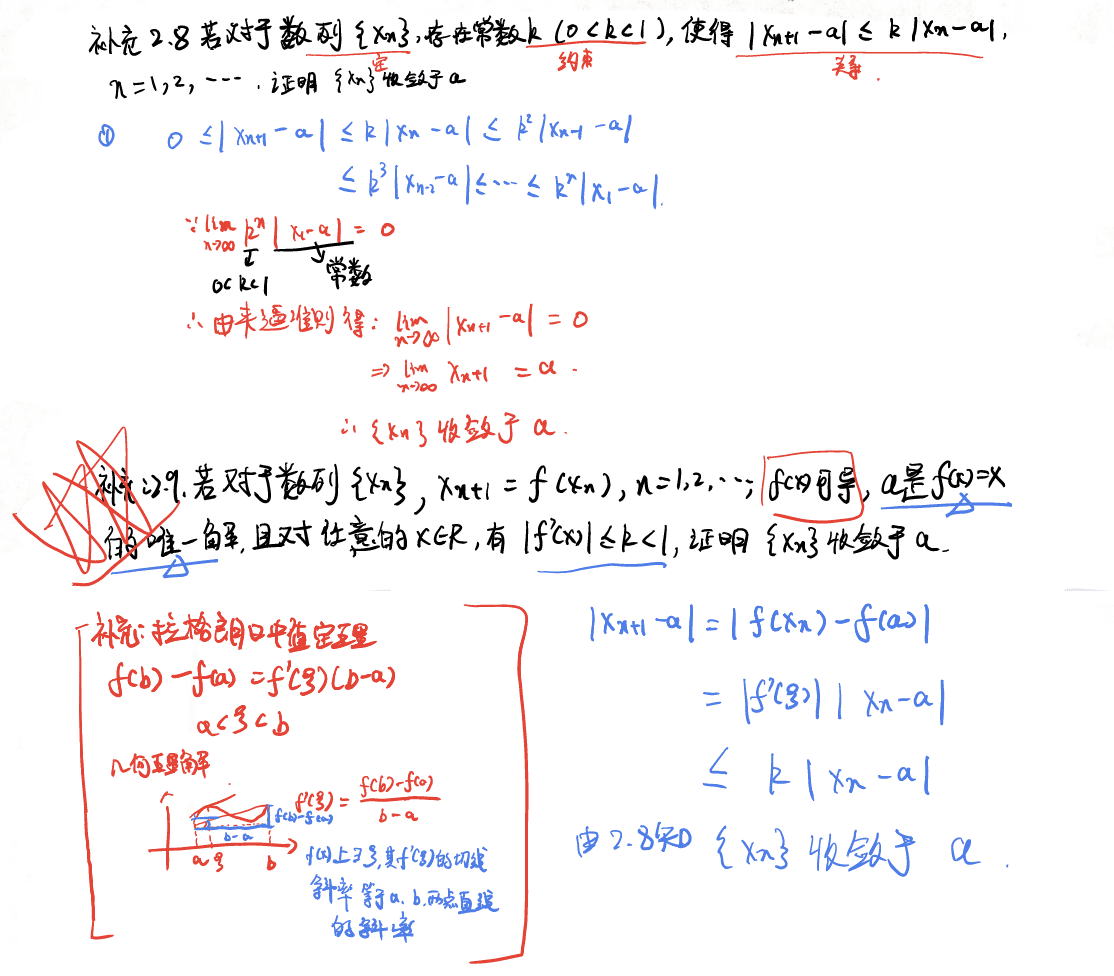 补充2.8 若对于数列{xn},存在常数k (0<k<1), 使得 |xn+1-a| ≤ k|xn-a|,
定 约束 关系
n=1,2,⋯. 证明{xn}收敛于a
① 0 ≤ |xn+1-a| ≤ k|xn-a| ≤ k²|xn-1-a|
≤ k³|xn-2-a| ≤ ⋯ ≤ kⁿ|x1-a|.
∵ lim n→∞ kⁿ|x1-a| = 0
0<k<1 常数
∴ 由夹逼准则得: lim n→∞ |xn+1-a| = 0
⇒ lim n→∞ xn+1 = a.
∴ {xn}收敛于a.
补充2.9. 若对于数列{xn}, xn+1=f(xn), n=1,2,⋯; f(x)可导, a是f(x)=x
的唯一解, 且对任意的x∈R, 有|f'(x)|≤k<1, 证明{xn}收敛于a.
补充: 拉格朗日中值定理
f(b)-f(a)=f'(ξ)(b-a)
a<ξ<b
几何理解
f'(ξ) = f(b)-f(a) / b-a
f(b)-f(a)
b-a
a ξ b
f(x)上∃ξ,其f'(ξ)的切线
斜率等于a、b.两点直线
的斜率
|xn+1-a| = |f(xn)-f(a)|
= |f'(ξ)| |xn-a|
≤ k|xn-a|
由2.8知 {xn}收敛于a.